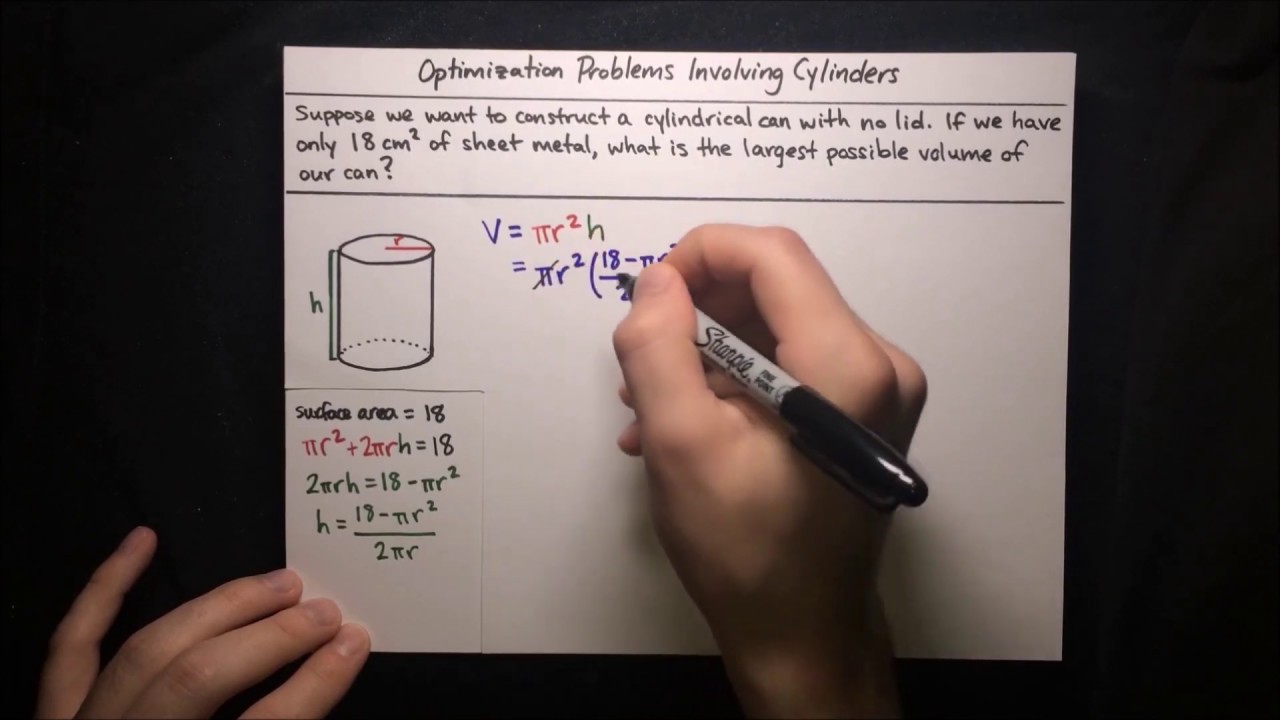 Optimization Problems Involving Cylinders
Suppose we want to construct a cylindrical can with no lid. If we have
only 18 cm² of sheet metal, what is the largest possible volume of
our can?
r
h
V = πr²h
= πr² (18 - πr²
2
surface area = 18
πr² + 2πrh = 18
2πrh = 18 - πr²
h = 18 - πr²
2πr
Sharpie
FINE
POINT